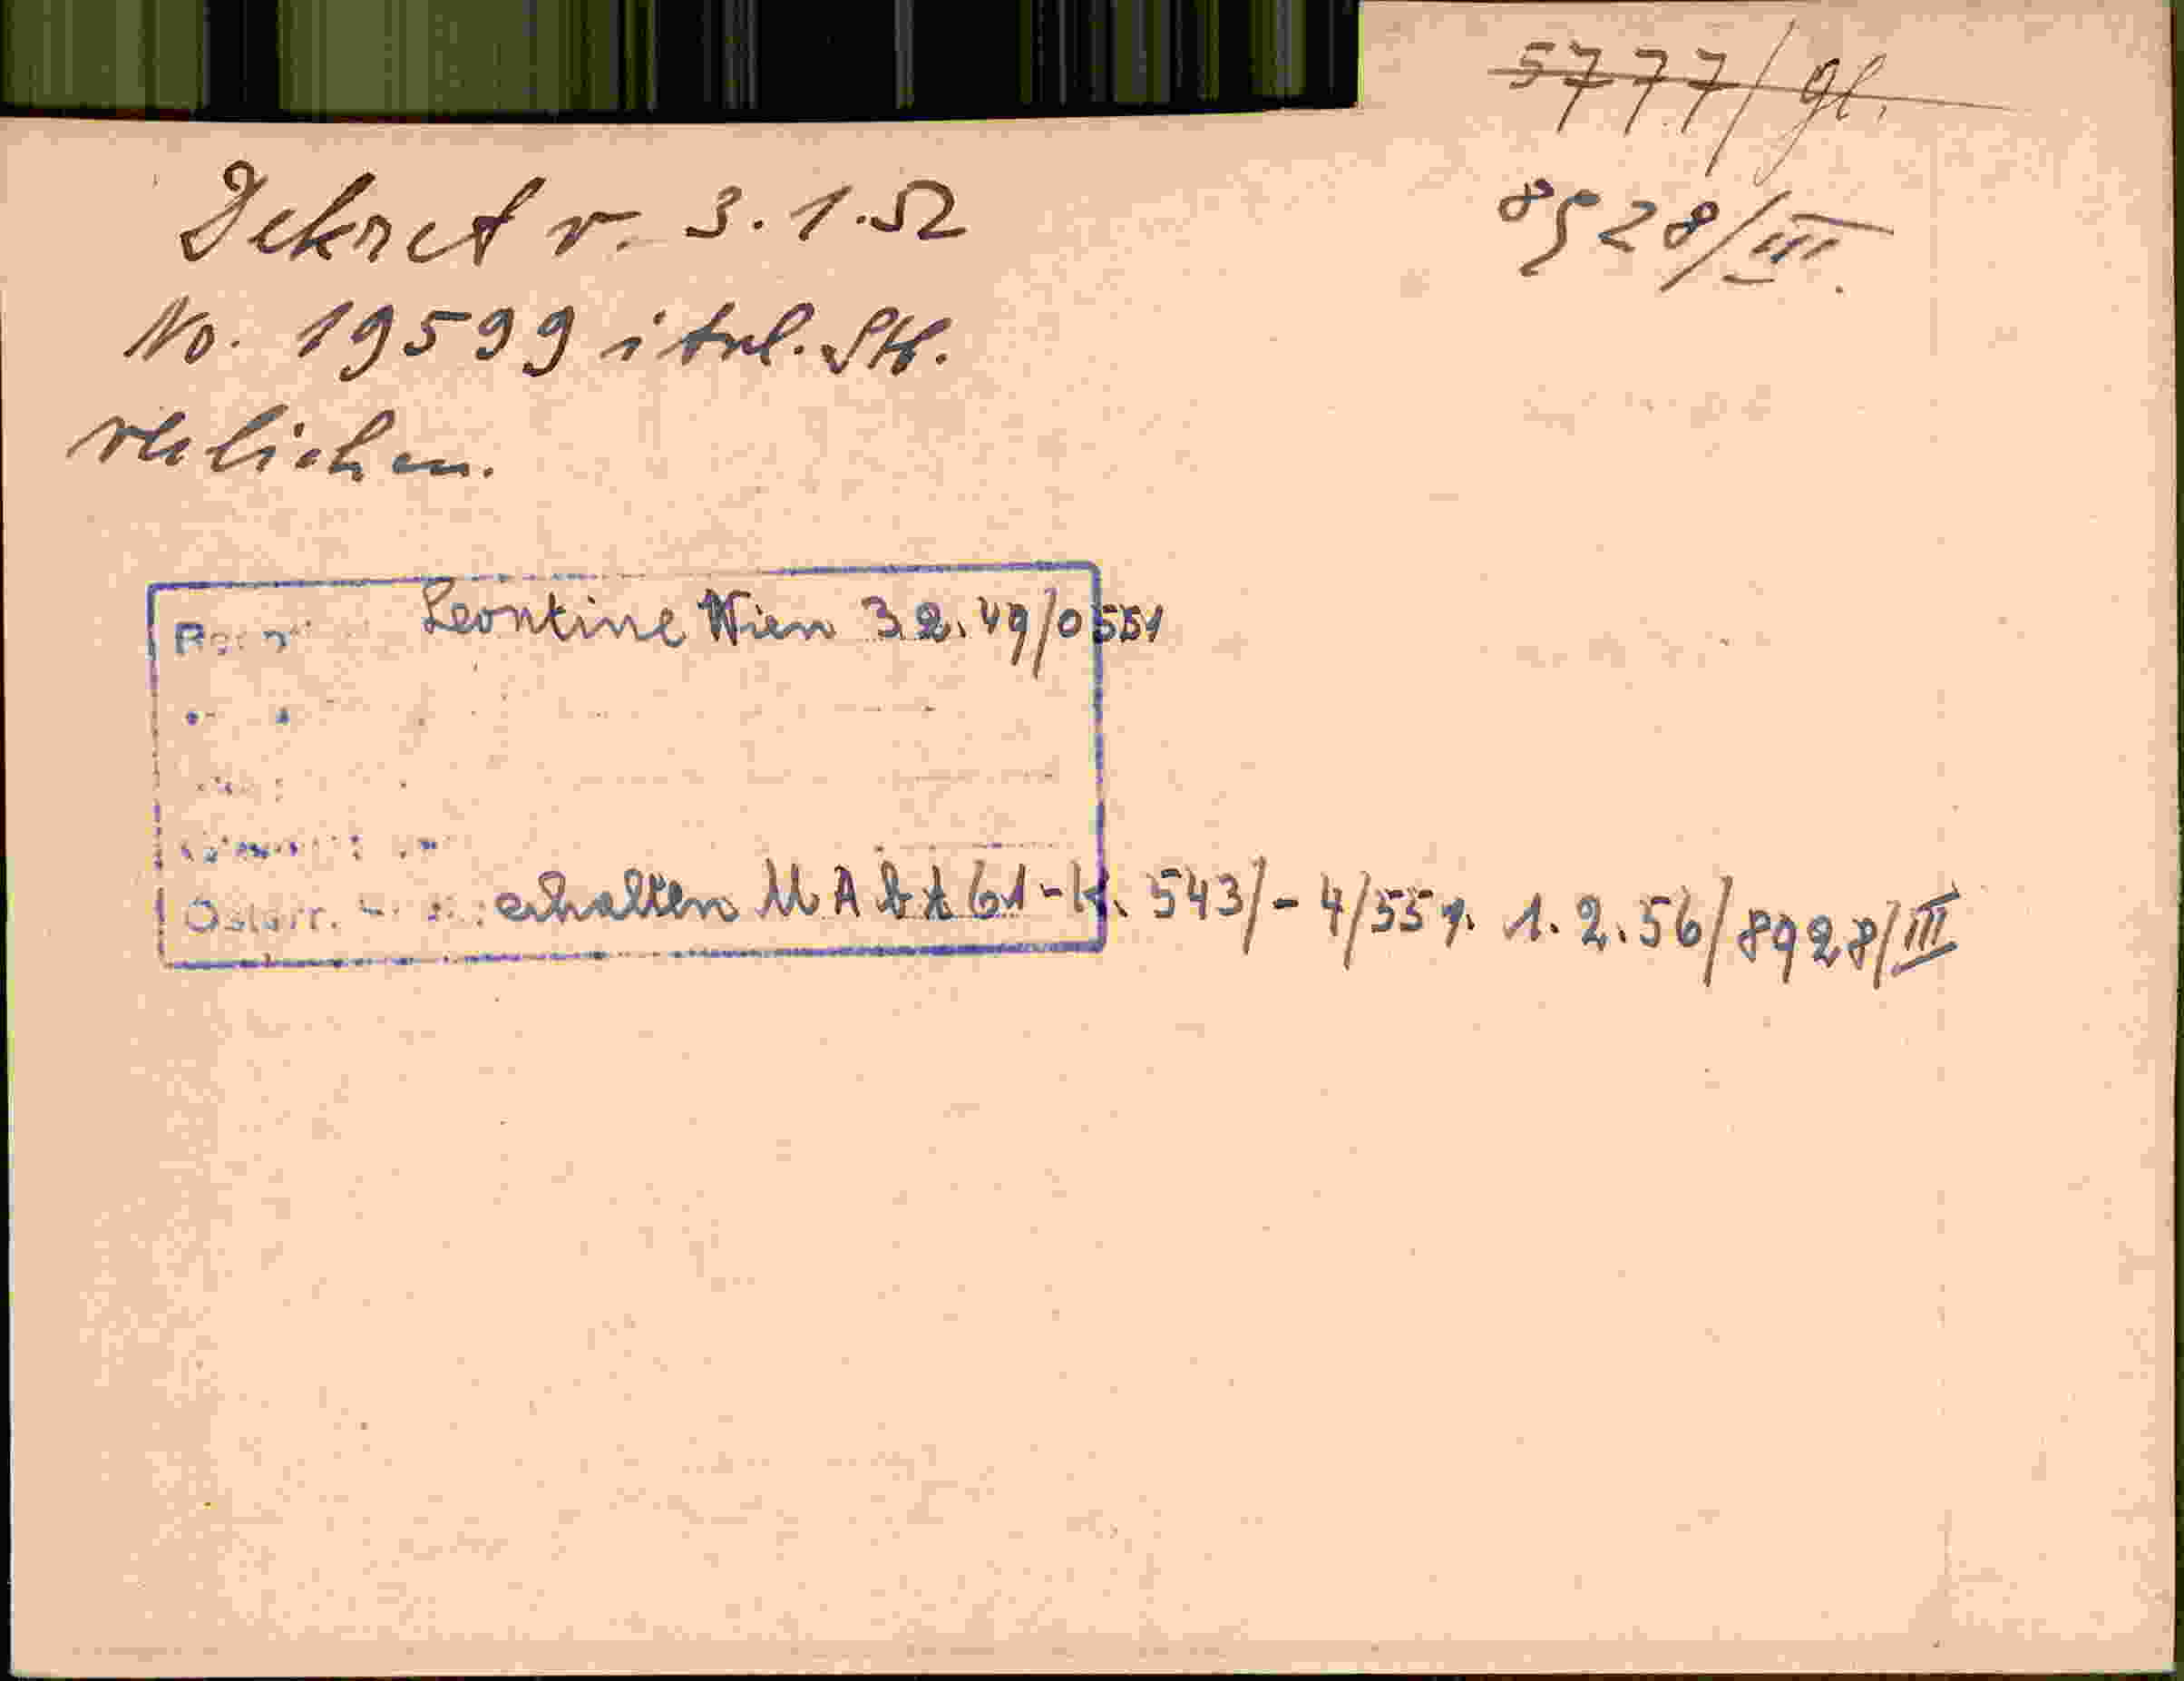 5777/gl.
8928/III.
Dekret v. 3.1.52
No. 19599 ital. Stb.
verlichen.
Leontine Wien 3.2.49/0551
Österr. erhalten M Abt 61-H. 543/-4/55 v. 1.2.56/8928/III